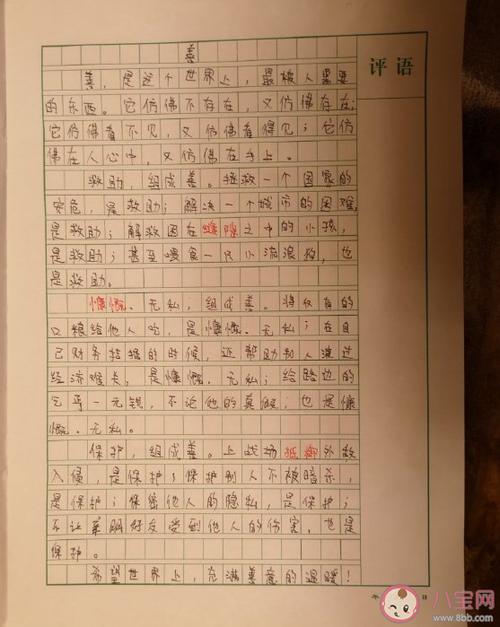 善
评语
善，是这个世界上，最被人需要
的东西。它仿佛不存在，又仿佛存在；
它仿佛看不见，又仿佛看得见；它仿
佛在人心中，又仿佛在手上。
救助，组成善。拯救一个国家的
安危，是救助；解决一个城市的困难，
是救助；解救困在缝隙之中的小孩，
是救助；甚至喂食一只小流浪狗，也
是救助。
慷慨、无私；组成善。将仅有的
口粮给他人吃，是慷慨、无私；在自
己财务拮据的时候，还帮助别人渡过
经济难关，是慷慨、无私；给路边的
乞丐一元钱，不论他的真假；也是慷
慨、无私。
保护，组成善。上战场抵御外敌
入侵，是保护；保护别人不被暗杀，
是保护；保密他人的隐私，是保护；
不让亲朋好友受到他人的伤害，也是
保护。
希望世界上，充满善意的温暖！
年
日
八宝网
www.8bb.com